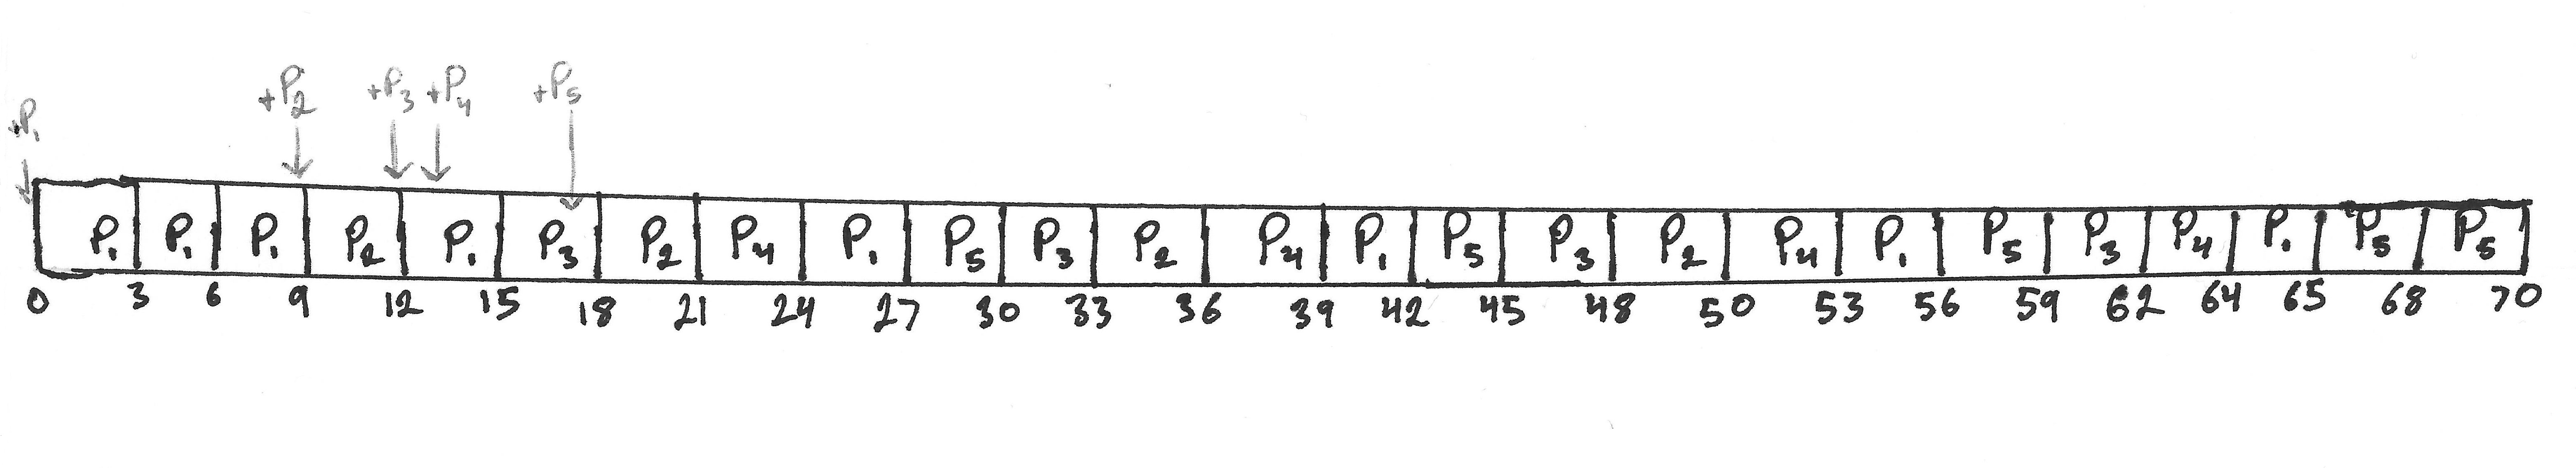 +P1
+P2 +P3 +P4 +P5
P1 P1 P1 P2 P1 P3 P2 P4 P1 P5 P3 P2 P4 P1 P5 P3 P2 P4 P1 P5 P3 P4 P1 P5 P5
0 3 6 9 12 15 18 21 24 27 30 33 36 39 42 45 48 50 53 56 59 62 64 65 68 70